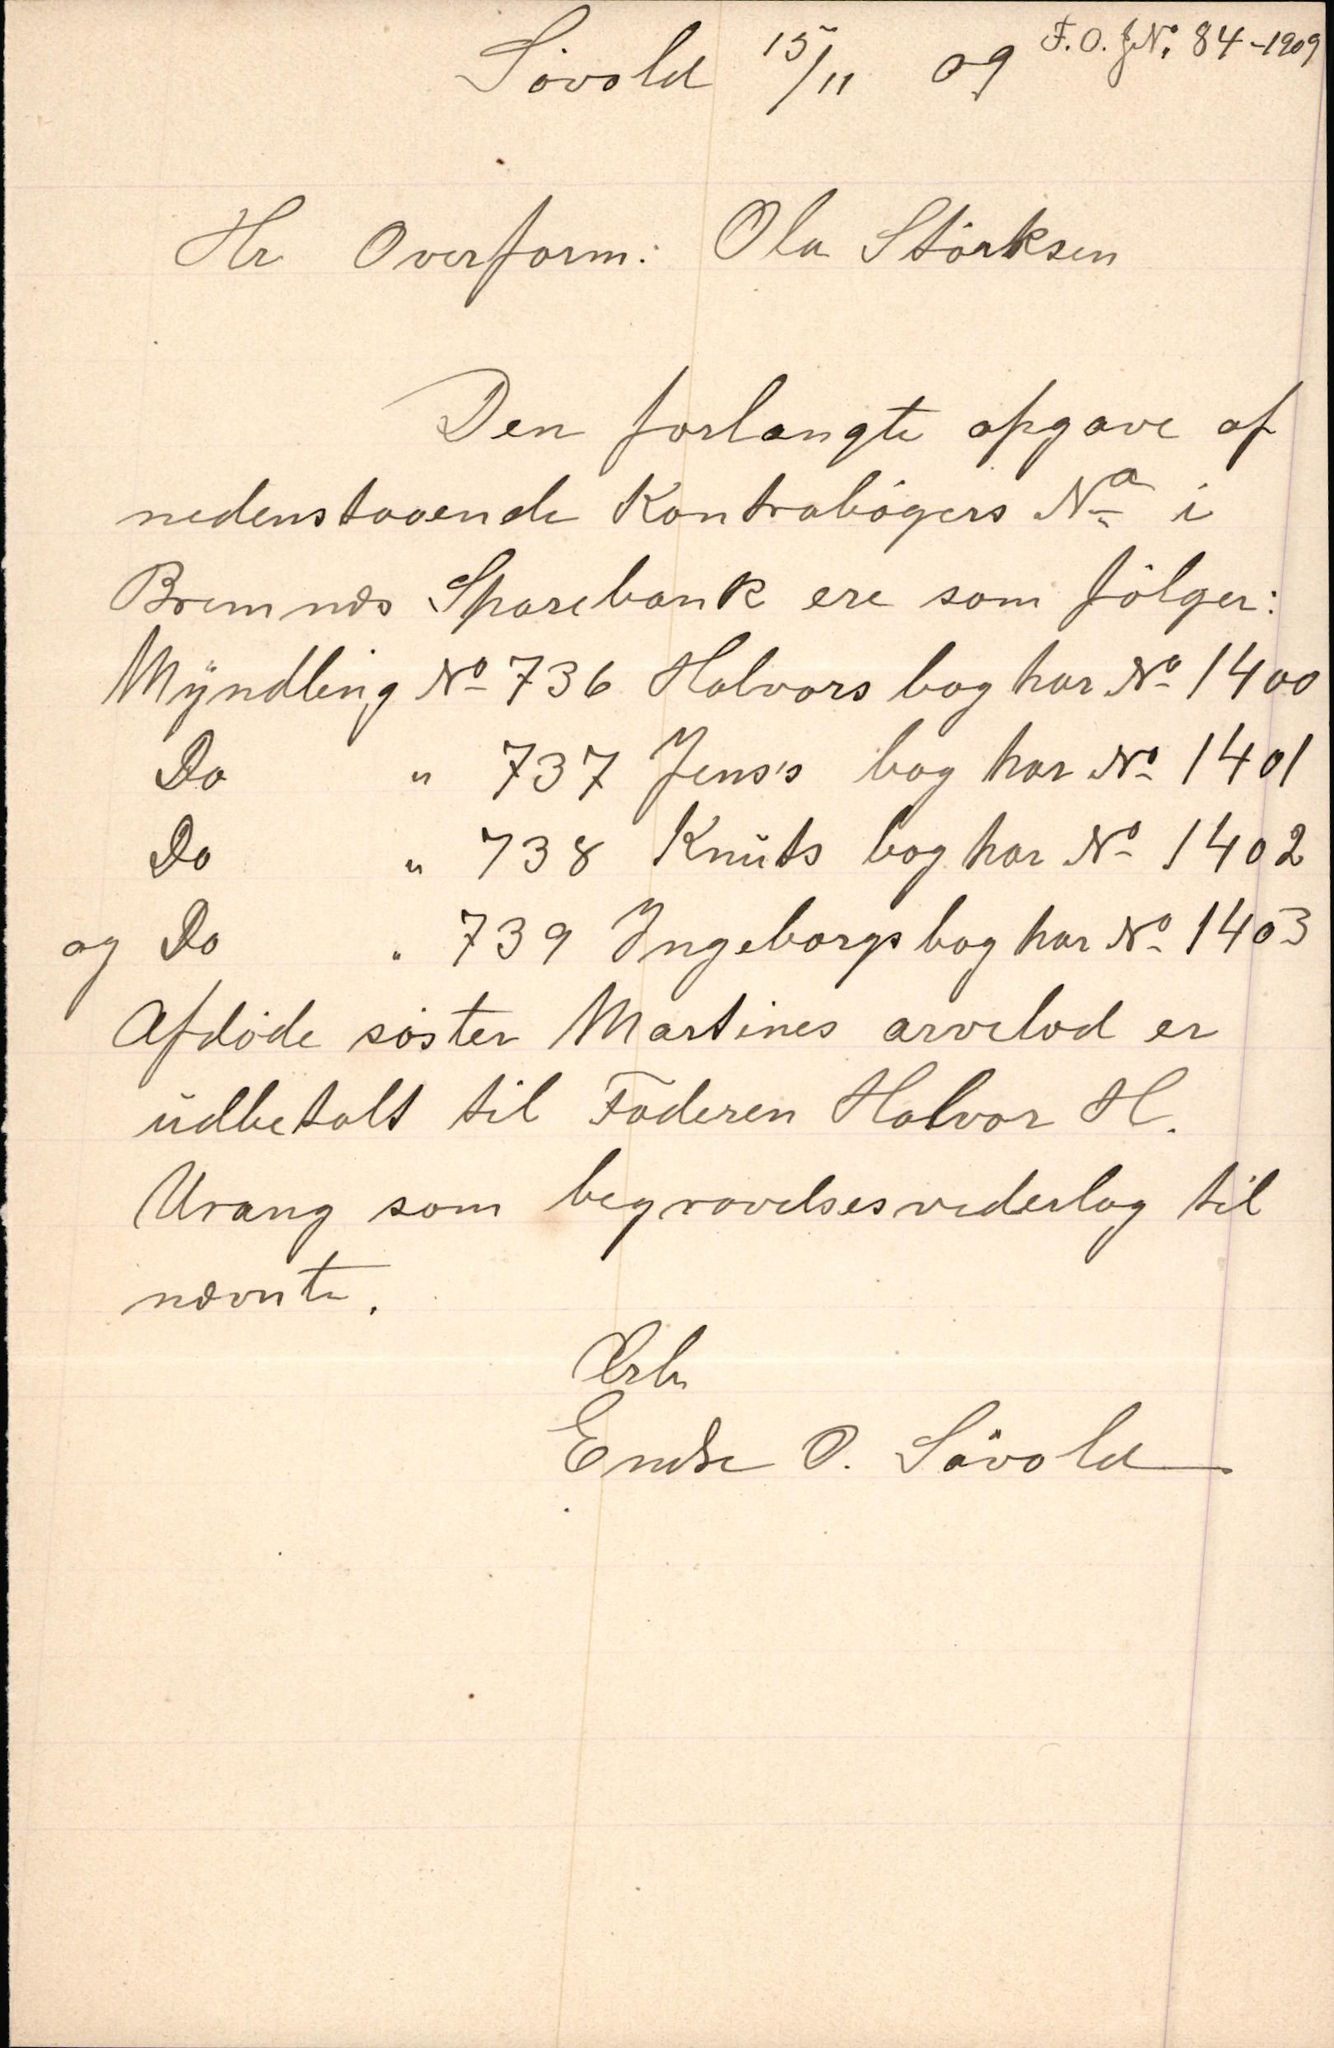 Sövold 15/11 09 F.O.J.No. 84-1909
Hr Overform: Ola Störksen
Den forlangte opgave af
nedenstaaende Kontrabøgers No i
Bremnæs Sparebank ere som følger:
Mÿndling No 736 Halvors bog har No 1400
Do " 737 Jens's bog har No 1401
Do " 738 Knŭts bog har No 1402
og Do " 739 Ingeborgs bog har No 1403
Afdøde søster Martines arvelod er
ŭdbetalt til Faderen Halvor H.
Urang som begravelsesvederlag til
nævnte.
Ærb
Endre O. Sövold